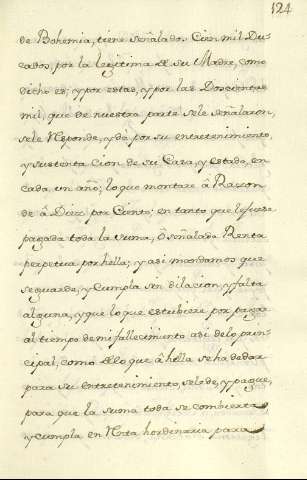 124
de Bohemia, tiene señalados Cien mil Du-
cados, por la legitima de su Madre, como
dicho es; y por estas, y por las Doscientas
mil, que de nuestra parte sele señalaron,
sele Responde, y dà por su entretenimiento,
y sustentacion de su Casa, y estado, en
cada un año; lo que montare â Razon
de â Diez por Ciento; en tanto que le fuere
pagada toda la suma, ô señalada Renta
perpetua por hella; y asi mandamos que
se guarde, y Cumpla sin dilacion, y falta
alguna, y que lo que estubiere por pagar
al tiempo de mi fallecimiento asi de lo prin-
cipal, como de lo que â hella se ha de dar
para su entretenimiento, sele de, y pague,
para que la suma toda se combierta
y cumpla en Renta hordinaria para